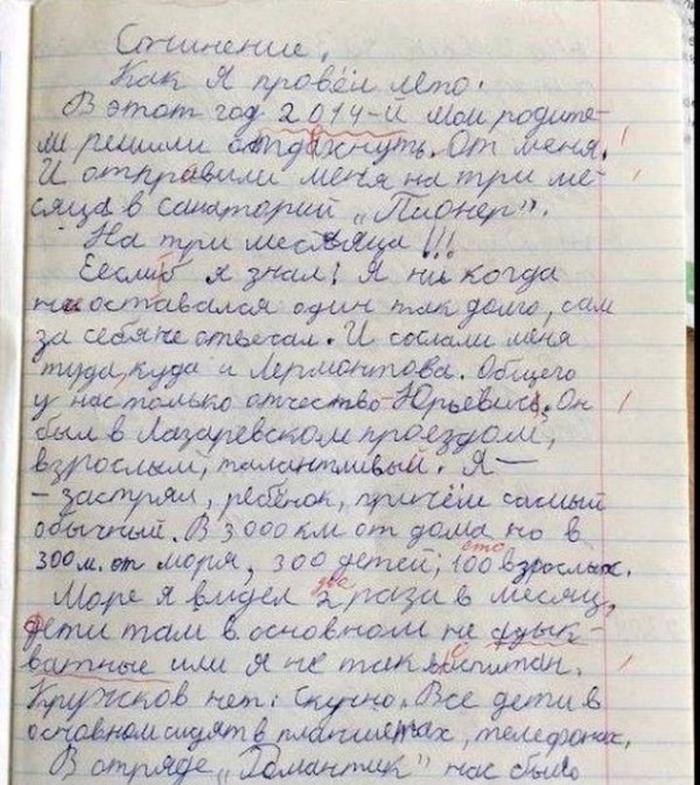 Сочинение.
Как я провёл лето.
В этот год 2014-й мои родите-
ли решили отдохнуть. От меня.
И отправили меня на три ме-
сяца в санаторий „Пионер".
На три месяца!!!
Еслиб я знал! Я ни когда
не оставался один так долго, сам
за себя не отвечал. И сослали меня
туда, куда и Лермонтова. Общего
у нас только отчество - Юрьевич. Он
был в Лазаревском проездом,
взрослый, талантливый. Я —
- застрял, ребёнок, причём самый
обычный. В 3000 км от дома но в
300 м. от моря, 300 детей, 100 взрослых.
сто
Море я видел 2 раза в месяц,
два
дети там в основном не адык-
ватные или я не так воспитан.
Кружков нет. Скучно. Все дети в
основном сидят в планшетах, телефонах.
В отряде „Романтик" нас было